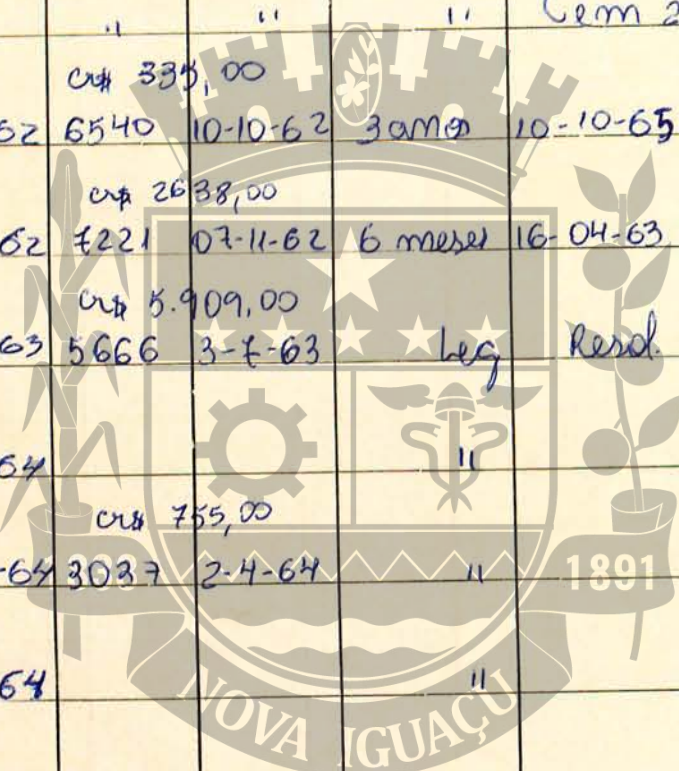 " " " Cem 2
Cr$ 335,00
62 6540 10-10-62 3 anos 10-10-65
Cr$ 2638,00
62 7221 07-11-62 6 meses 16-04-63
Cr$ 5.909,00
63 5666 3-7-63 Leg Resol.
64 "
Cr$ 755,00
-64 3037 2-4-64 "
1891
64 "
NOVA IGUAÇU